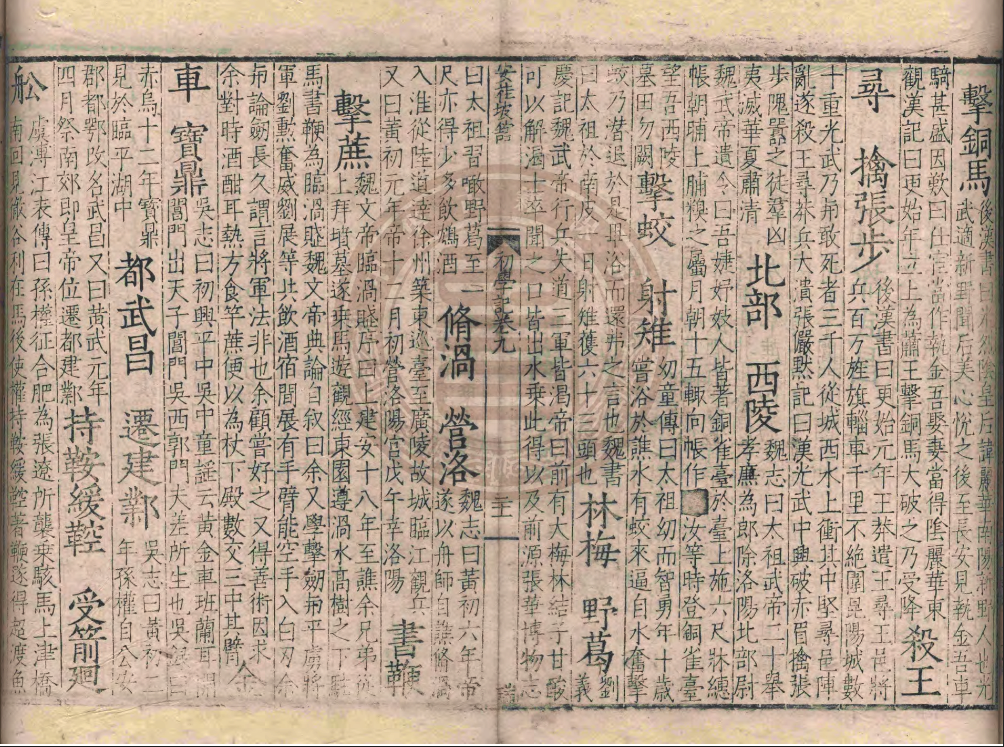 擊銅馬
後漢書曰光烈陰皇后諱麗華南陽新野人也光
武適新野聞后美心悅之後至長安見執金吾車
騎甚盛因歎曰仕宦當作執金吾娶妻當得陰麗華東
觀漢記曰更始年立上為蕭王擊銅馬大破之乃受降
殺王
尋 擒張步
後漢書曰更始元年王莽遣王尋王邑將
兵百万旌旗輜車千里不絕圍昆陽城數
十重光武乃與敢死者三千人從城西水上衝其中堅尋邑陣
亂遂殺王尋莽兵大潰張嚴默記曰漢光武中興破赤眉擒張
步隗囂之徒羣凶
夷滅華夏肅清
北部 西陵
魏志曰太祖武帝二十舉
孝廉為郎除洛陽北部尉
魏武帝遺令曰吾婕妤妓人皆著銅雀臺於臺上施六尺牀繐
帳朝晡上脯糗之屬月朝十五輒向帳作汝等時登銅雀臺
望吾西陵
墓田勿闕
擊蛟 射雉
幼童傳曰太祖幼而智勇年十歲
嘗浴於譙水有蛟來逼自水奮擊
蛟乃潛退於是畢浴而還弗之言也魏書
曰太祖於南皮一日射雉獲六十三頭也
林梅 野葛
劉
義
慶記魏武帝行兵失道三軍皆渴帝曰前有大梅林結子甘酸
可以解渴士卒聞之口皆出水乘此得以及前源張華博物志
安桂坡館
初學記卷九
二十一
曰太祖習噉野葛至一
尺亦得少多飲鴆酒
脩渦 營洛
魏志曰黃初六年帝
遂以舟師自譙脩渦
入淮從陸道達徐州築東巡臺至廣陵故城臨江觀兵
又曰黃初元年帝十二月初營洛陽宮戊午幸洛陽
書鞭
擊蔗
魏文帝臨渦賦序曰上建安十八年至譙余兄弟從
上拜墳墓遂乘馬遊觀經東園遵渦水高樹之下駐
馬書鞭為臨渦賦魏文帝典論自叙曰余又學擊劒與平虜將
軍劉勳奮威劉展等共飲酒宿聞展有手臂能空手入白刃余
與論劒長久謂言將軍法非也余顧嘗好之又得善術因求
余對時酒酣耳熱方食竿蔗便以為杖下殿數交三中其臂
金
車 寶鼎
吳志曰初興平中吳中童謠云黃金車班蘭耳開
閶門出天子閶門吳西郭門夫差所生也吳錄曰
赤烏十二年寶鼎
見於臨平湖中
都武昌 遷建鄴
吳志曰黃初二
年孫權自公安
郡都鄂改名武昌又曰黃武元年
四月祭南郊即皇帝位遷都建鄴
持鞍緩鞚 受箭廻
舩
虞溥江表傳曰孫權征合肥為張遼所襲乘駿馬上津橋
南回見徹谷利在馬後使權持鞍緩鞚著鞭遂得超渡魚